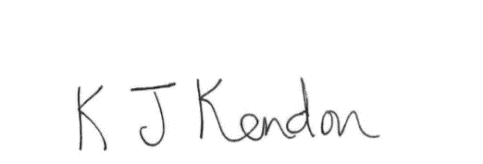 K J Kendon